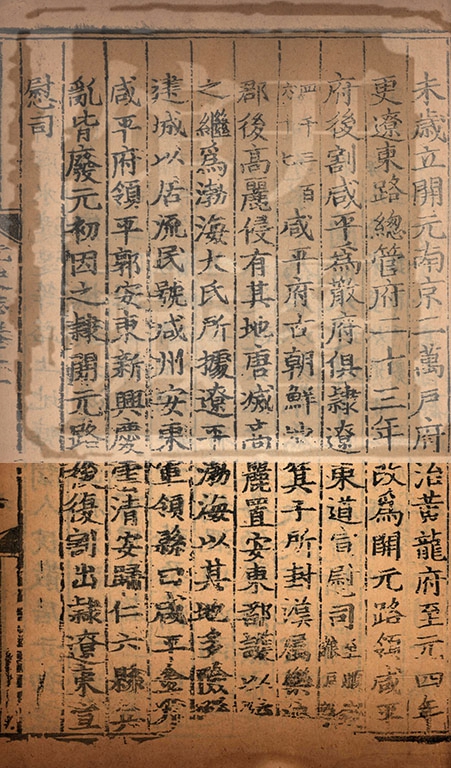 未歲立開元南京二萬戶府治黃龍府至元四年
更遼東路總管府二十三年改爲開元路領咸平
府後割咸平爲散府俱隸遼東道宣慰司至順
四千三百六十七咸平府古朝鮮地箕子所封漢屬樂
郡後高麗侵有其地唐滅高麗置安東都護以
之繼爲渤海大氏所據遼平渤海以其地多險
建城以居流民號咸州安東軍領縣曰咸平金升
咸平府領平郭安東新興慶雲清安歸仁六縣兵
亂皆廢元初因之隸開元路後復割出隸遼東宣
慰司